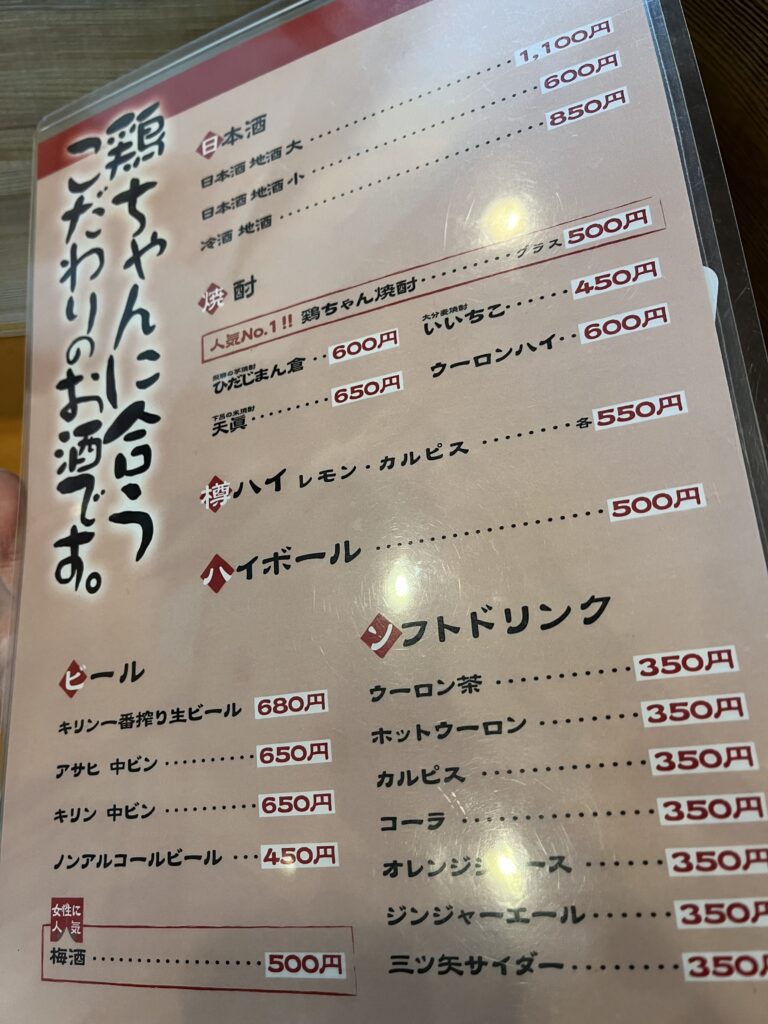 鶏ちゃんに合う
こだわりのお酒です。
日本酒
日本酒 地酒 大 1,100円
日本酒 地酒 小 600円
冷酒 地酒 850円
焼酎
人気No.1!! 鶏ちゃん焼酎 グラス 500円
飛騨の芋焼酎
ひだじまん倉 600円
大分麦焼酎
いいちこ 450円
下呂の米焼酎
天眞 650円
ウーロンハイ 600円
樽ハイ レモン・カルピス 各550円
ハイボール 500円
ビール
キリン一番搾り生ビール 680円
アサヒ 中ビン 650円
キリン 中ビン 650円
ノンアルコールビール 450円
女性に
人気
梅酒 500円
ソフトドリンク
ウーロン茶 350円
ホットウーロン 350円
カルピス 350円
コーラ 350円
オレンジジュース 350円
ジンジャーエール 350円
三ツ矢サイダー 350円